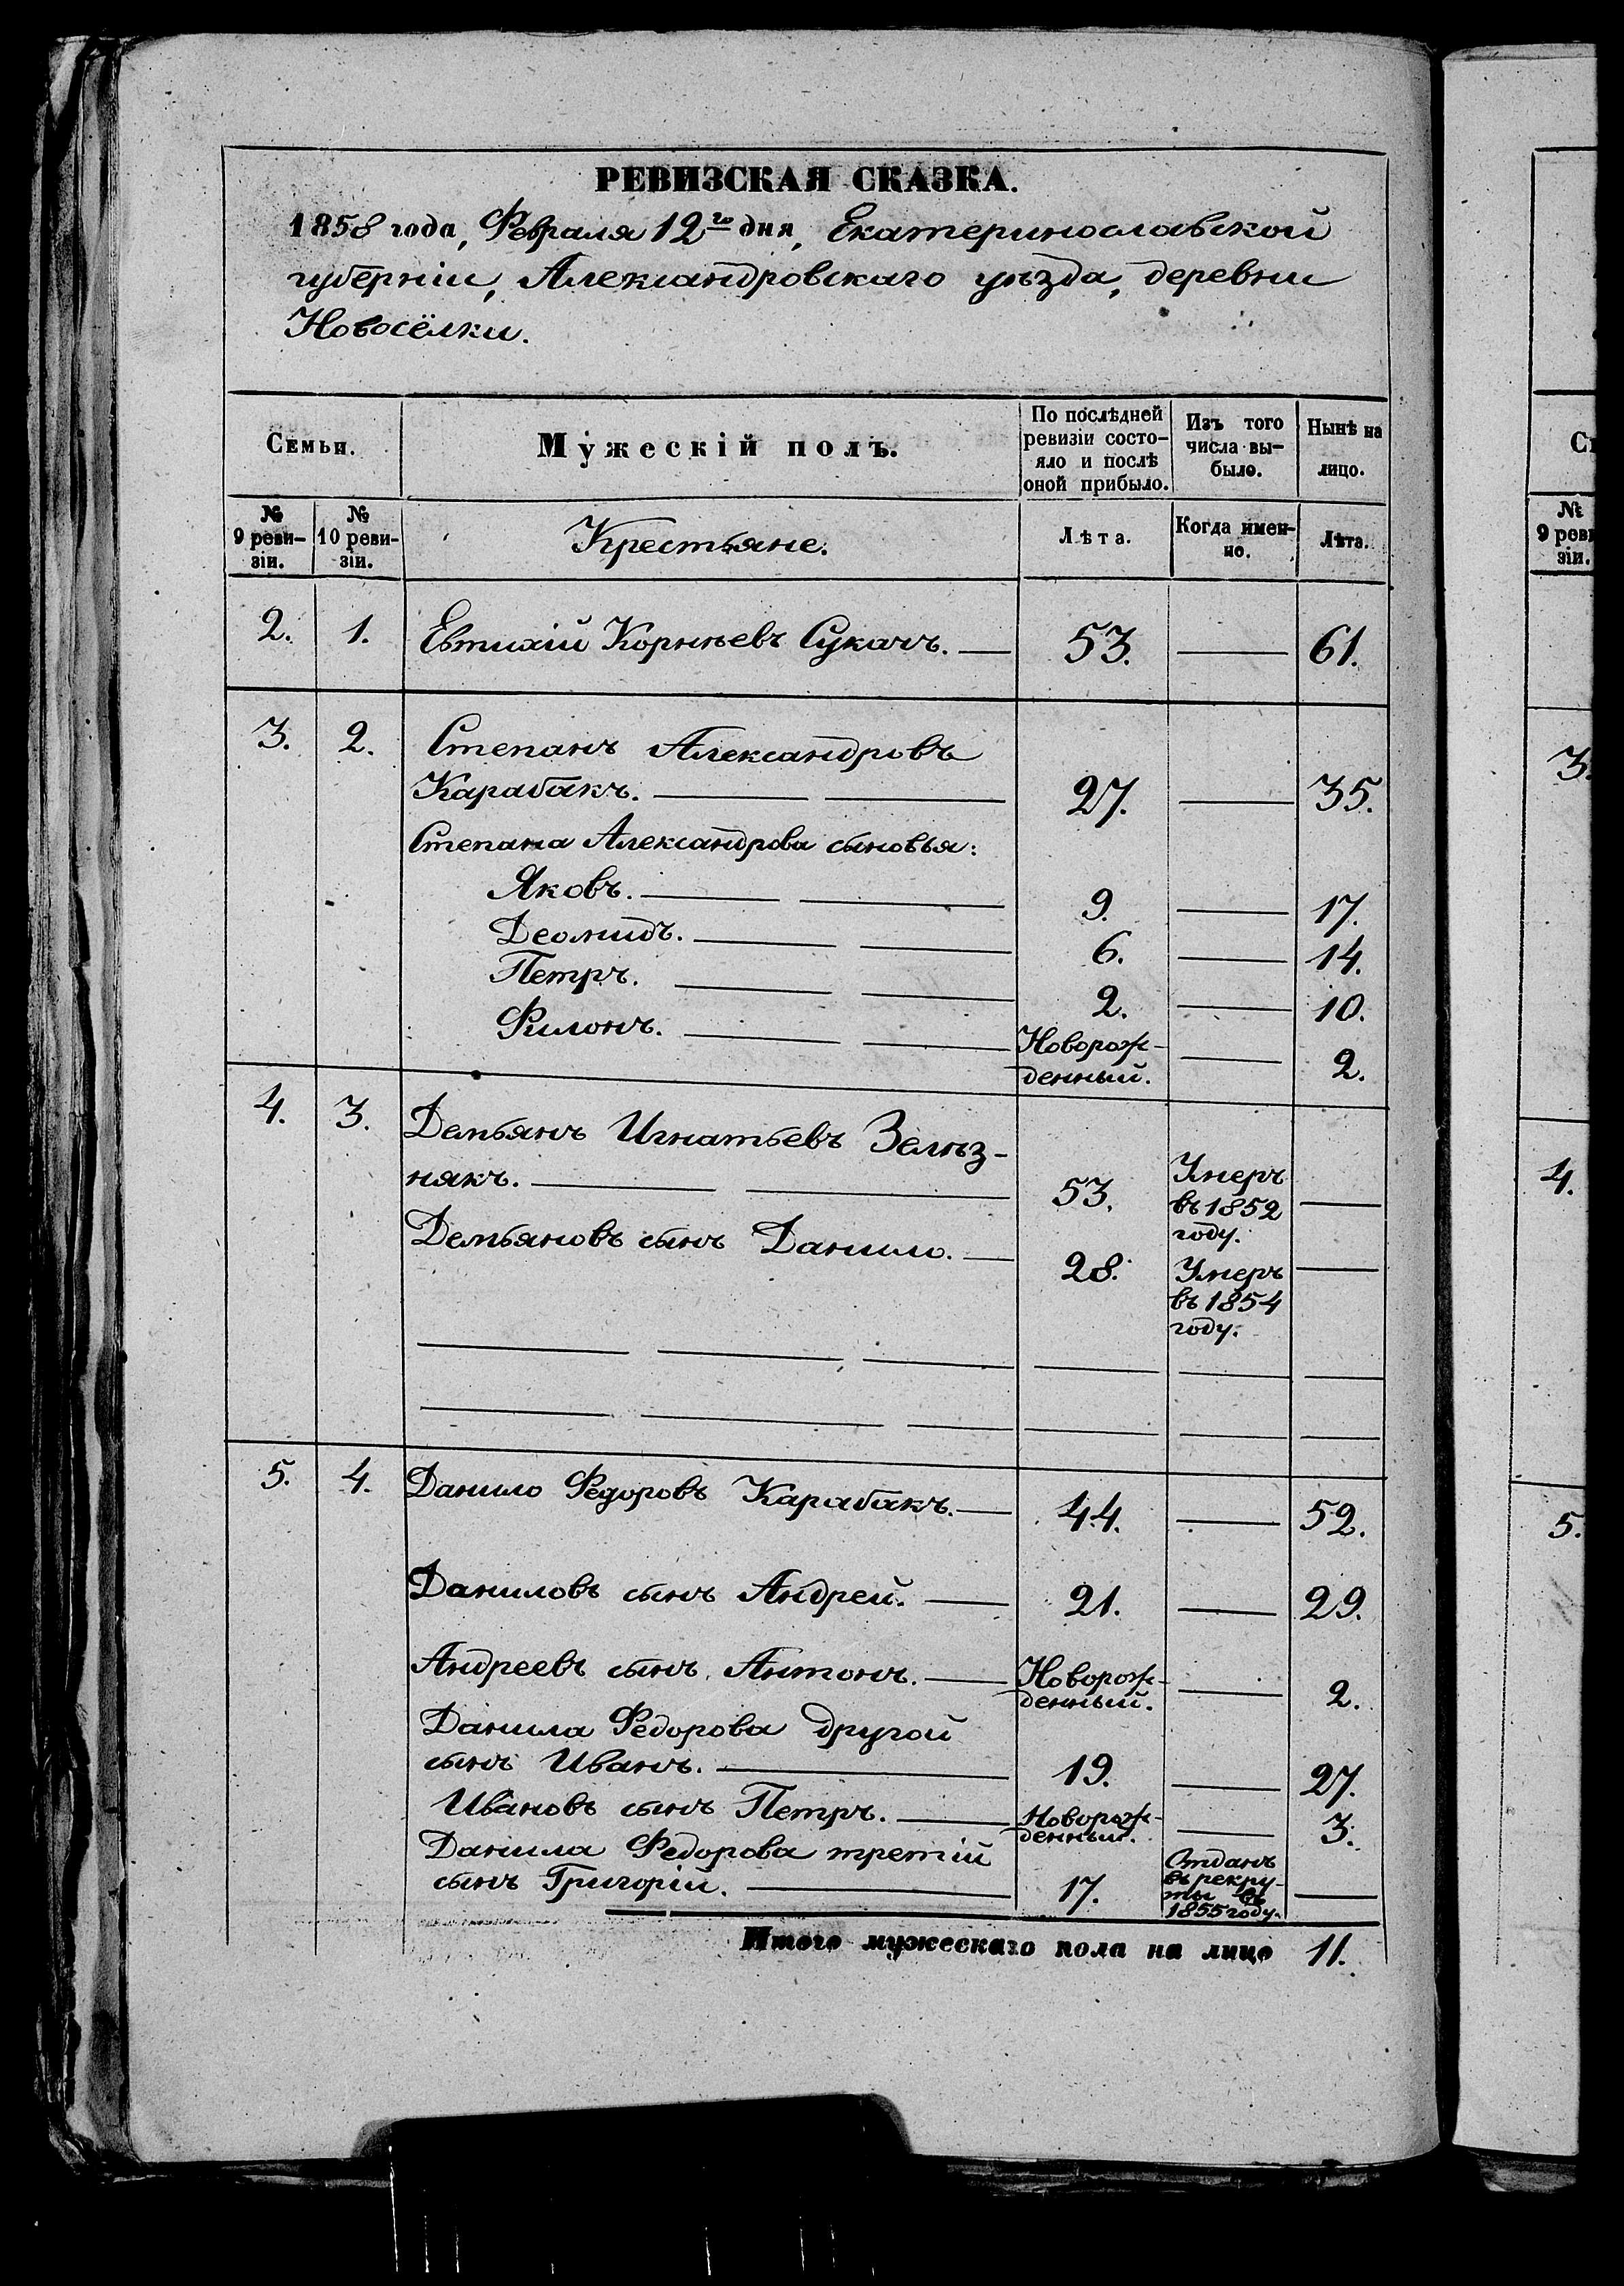 РЕВИЗСКАЯ СКАЗКА.
1858 года, Февраля 12го дня, Екатеринославской
губерніи, Александровскаго уѣзда, деревни
Новосёлки.
Семьи. Мужескій полъ. По послѣдней ревизіи состо- яло и послѣ оной прибыло. Изъ того числа вы- было. Нынѣ на лицо.
№ 9 реви- зіи. № 10 реви- зіи. Крестьяне. Лѣта. Когда имен- но. Лѣта.
2. 1. Евтихій Корнѣевъ Сукачъ. 53. 61.
3. 2. Степанъ Александровъ
Карабакъ. 27. 35.
Степана Александрова сыновья:
Яковъ. 9. 17.
Деомидъ. 6. 14.
Петръ. 2. 10.
Филонъ. Новорож- денный. 2.
4. 3. Демьянъ Игнатьевъ Зелѣз-
някъ. 53. Умеръ въ 1852 году.
Демьяновъ сынъ Данило. 28. Умеръ въ 1854 году.
5. 4. Данило Федоровъ Карабакъ. 44. 52.
Даниловъ сынъ Андрей. 21. 29.
Андреевъ сынъ Антонъ. Новорож- денный. 2.
Данила Федорова другой
сынъ Иванъ. 19. 27.
Ивановъ сынъ Петръ. Новорож- денный. 3.
Данила Федорова третій
сынъ Григорій. 17. Отданъ въ рекру- ты въ 1855 году.
Итого мужескаго пола на лицо 11.
С
№
9 рев
зіи.
3.
4.
5.